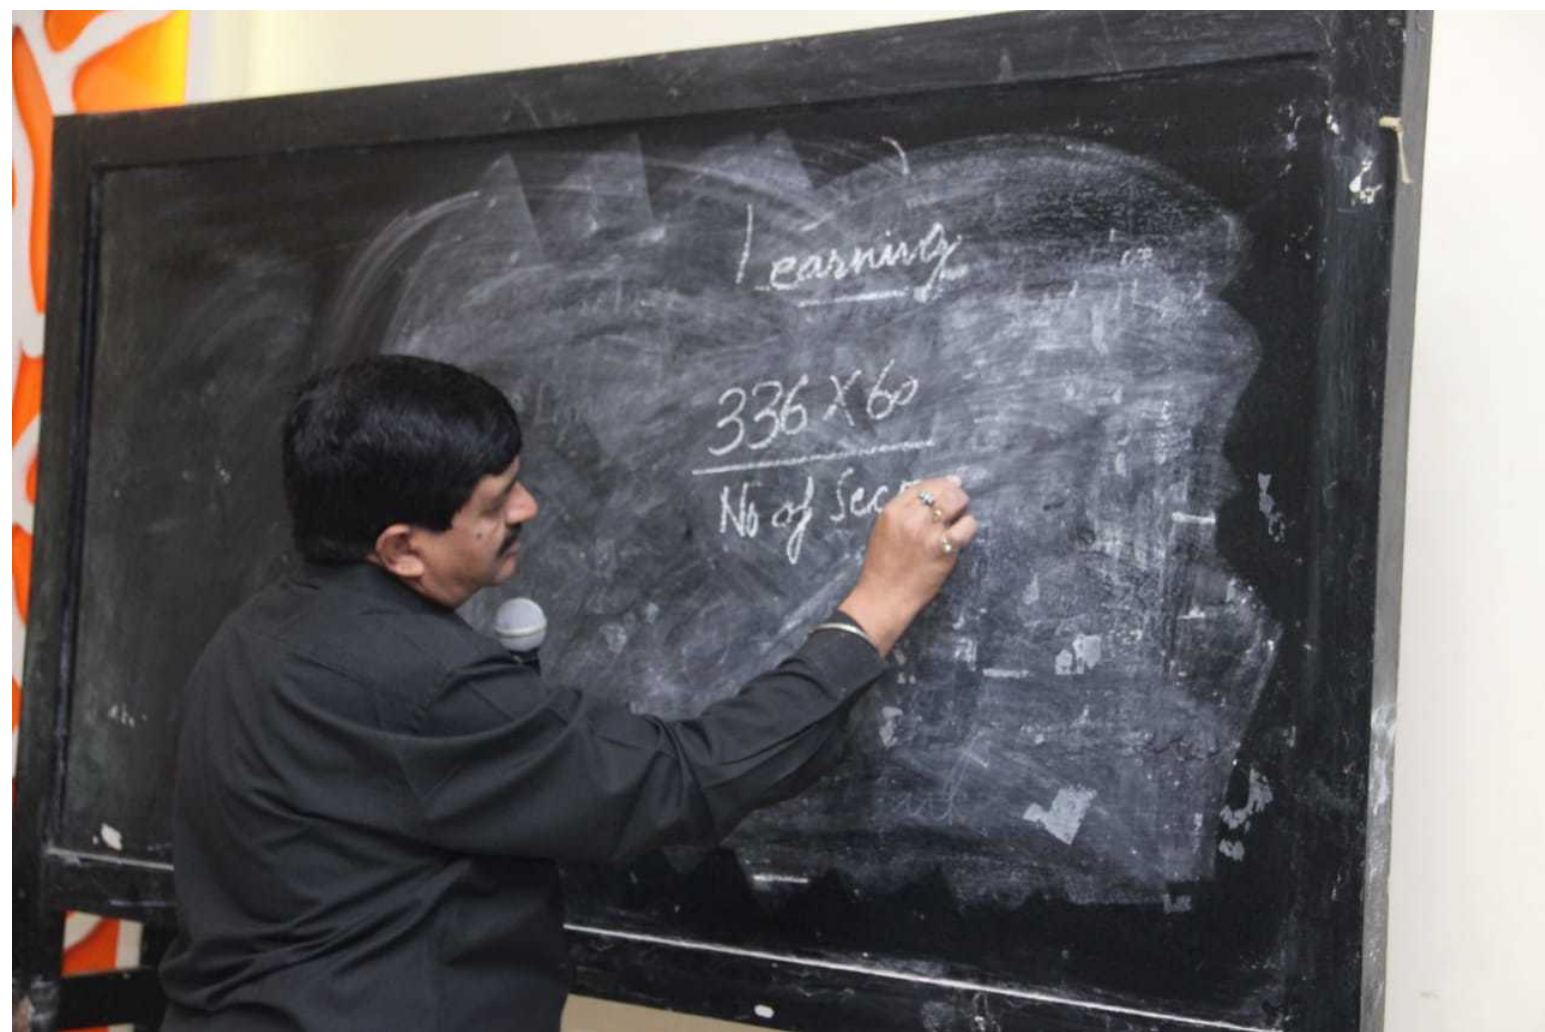 Learning
336 X 60
No of Sec